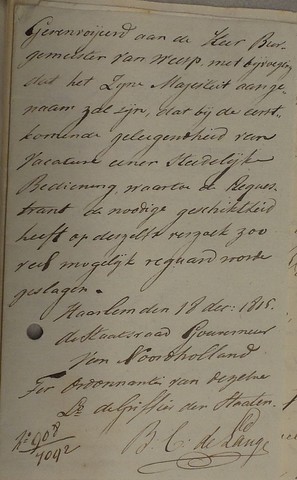 Gerenvoijeerd aan de Heer Bur-
gemeester van Weesp, met bijvoeging
dat het Zijne Majesteit aange-
naam zal zijn, dat bij de eerst-
komende gelegentheid van
Vacature eener Stedelijke
Bediening, waartoe de Reques-
trant de noodige geschiktheid
heeft op deszelfs verzoek zoo
veel mogelijk reguard worde
geslagen.
Haarlem den 18 dec: 1815.
de Staatsraad Gouverneur
van Noordholland
Ter Ordonnantie van dezelve
De Griffier der Staaten.
B. C. de Lange